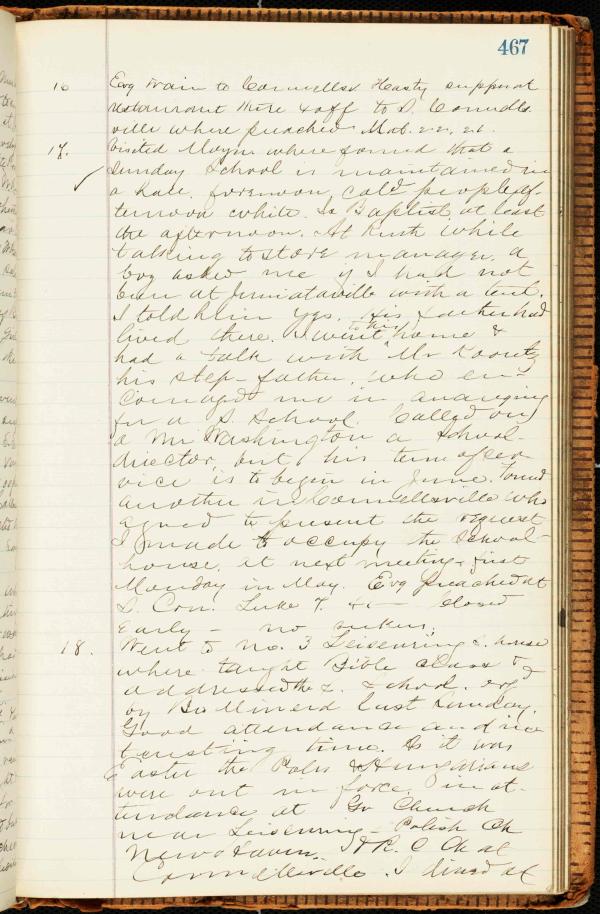 467
16 Evg train to Connellsv Hasty supper at
restaurant there & off to S. Connells
ville where preached Mat. 22, 26.
17. Visited Moyer where found that a
Sunday School is maintained in
a hall, forenoon, cold people af-
ternoon white. Is Baptist at least
the afternoon. At Rush while
talking to store manager, a
boy asked me if I had not
been at Juniataville with a tent.
I told him yes. His father had
lived there. I went to his home &
had a talk with Mr Koontz
his step-father, who en-
couraged me in arranging
for a S. School. Called on
a Mr Washington a school-
director, but his term of ser
vice is to begin in June. Found
another in Connellsville who
agreed to present the request
I made to occupy the school-
house, at next meeting - first
Monday in May. Evg preached at
S. Con. Luke 7. closed
early - no
18. Went to No. 3 Leisenring s. house
where taught Bible class &
addressed the S. School. org
by Bro last Sunday.
Good attendance and in
teresting time. As it was
Easter the Poles & Hungarians
were out in force, in at-
tendance at Gr Church
near Leisenring - Polish Ch
New Haven, & R. C Ch at
Connellsville. I dined at